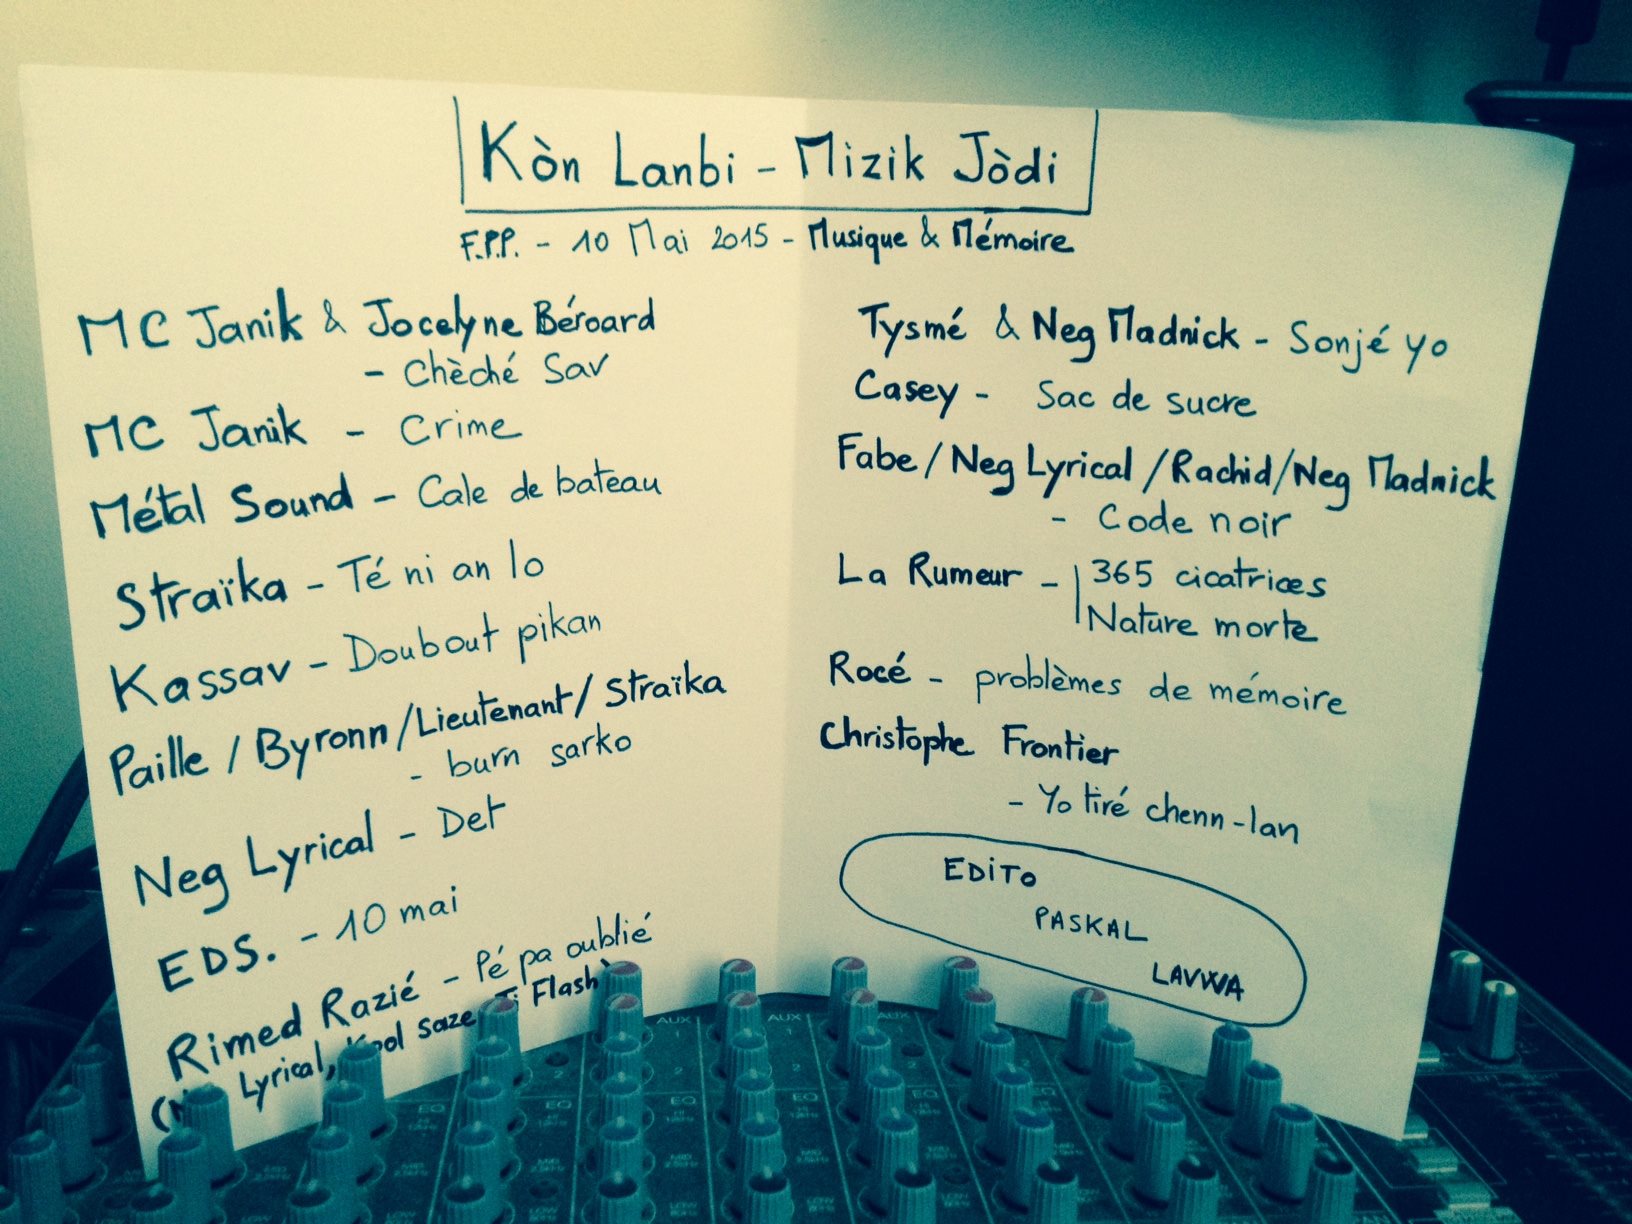 Kòn Lanbi - Mizik Jòdi
F.P.P. - 10 Mai 2015 - Musique & Mémoire
MC Janik & Jocelyne Béroard
- Chèché Sav
MC Janik - Crime
Métal Sound - Cale de bateau
Straïka - Té ni an lo
Kassav - Doubout pikan
Paille / Byronn / Lieutenant / Straïka
- burn sarko
Neg Lyrical - Det
EDS. - 10 mai
Rimed Razié - Pé pa oublié
Lyrical, saze Flash)
Tysmé & Neg Madnick - Sonjé yo
Casey - Sac de sucre
Fabe / Neg Lyrical / Rachid / Neg Madnick
- Code noir
La Rumeur - 365 cicatrices
Nature morte
Rocé - problèmes de mémoire
Christophe Frontier
- Yo tiré chenn-lan
EDiTo
PASKAL
LAVWA
AUX
AUX
AUX
EQ
EQ
EQ
EQ